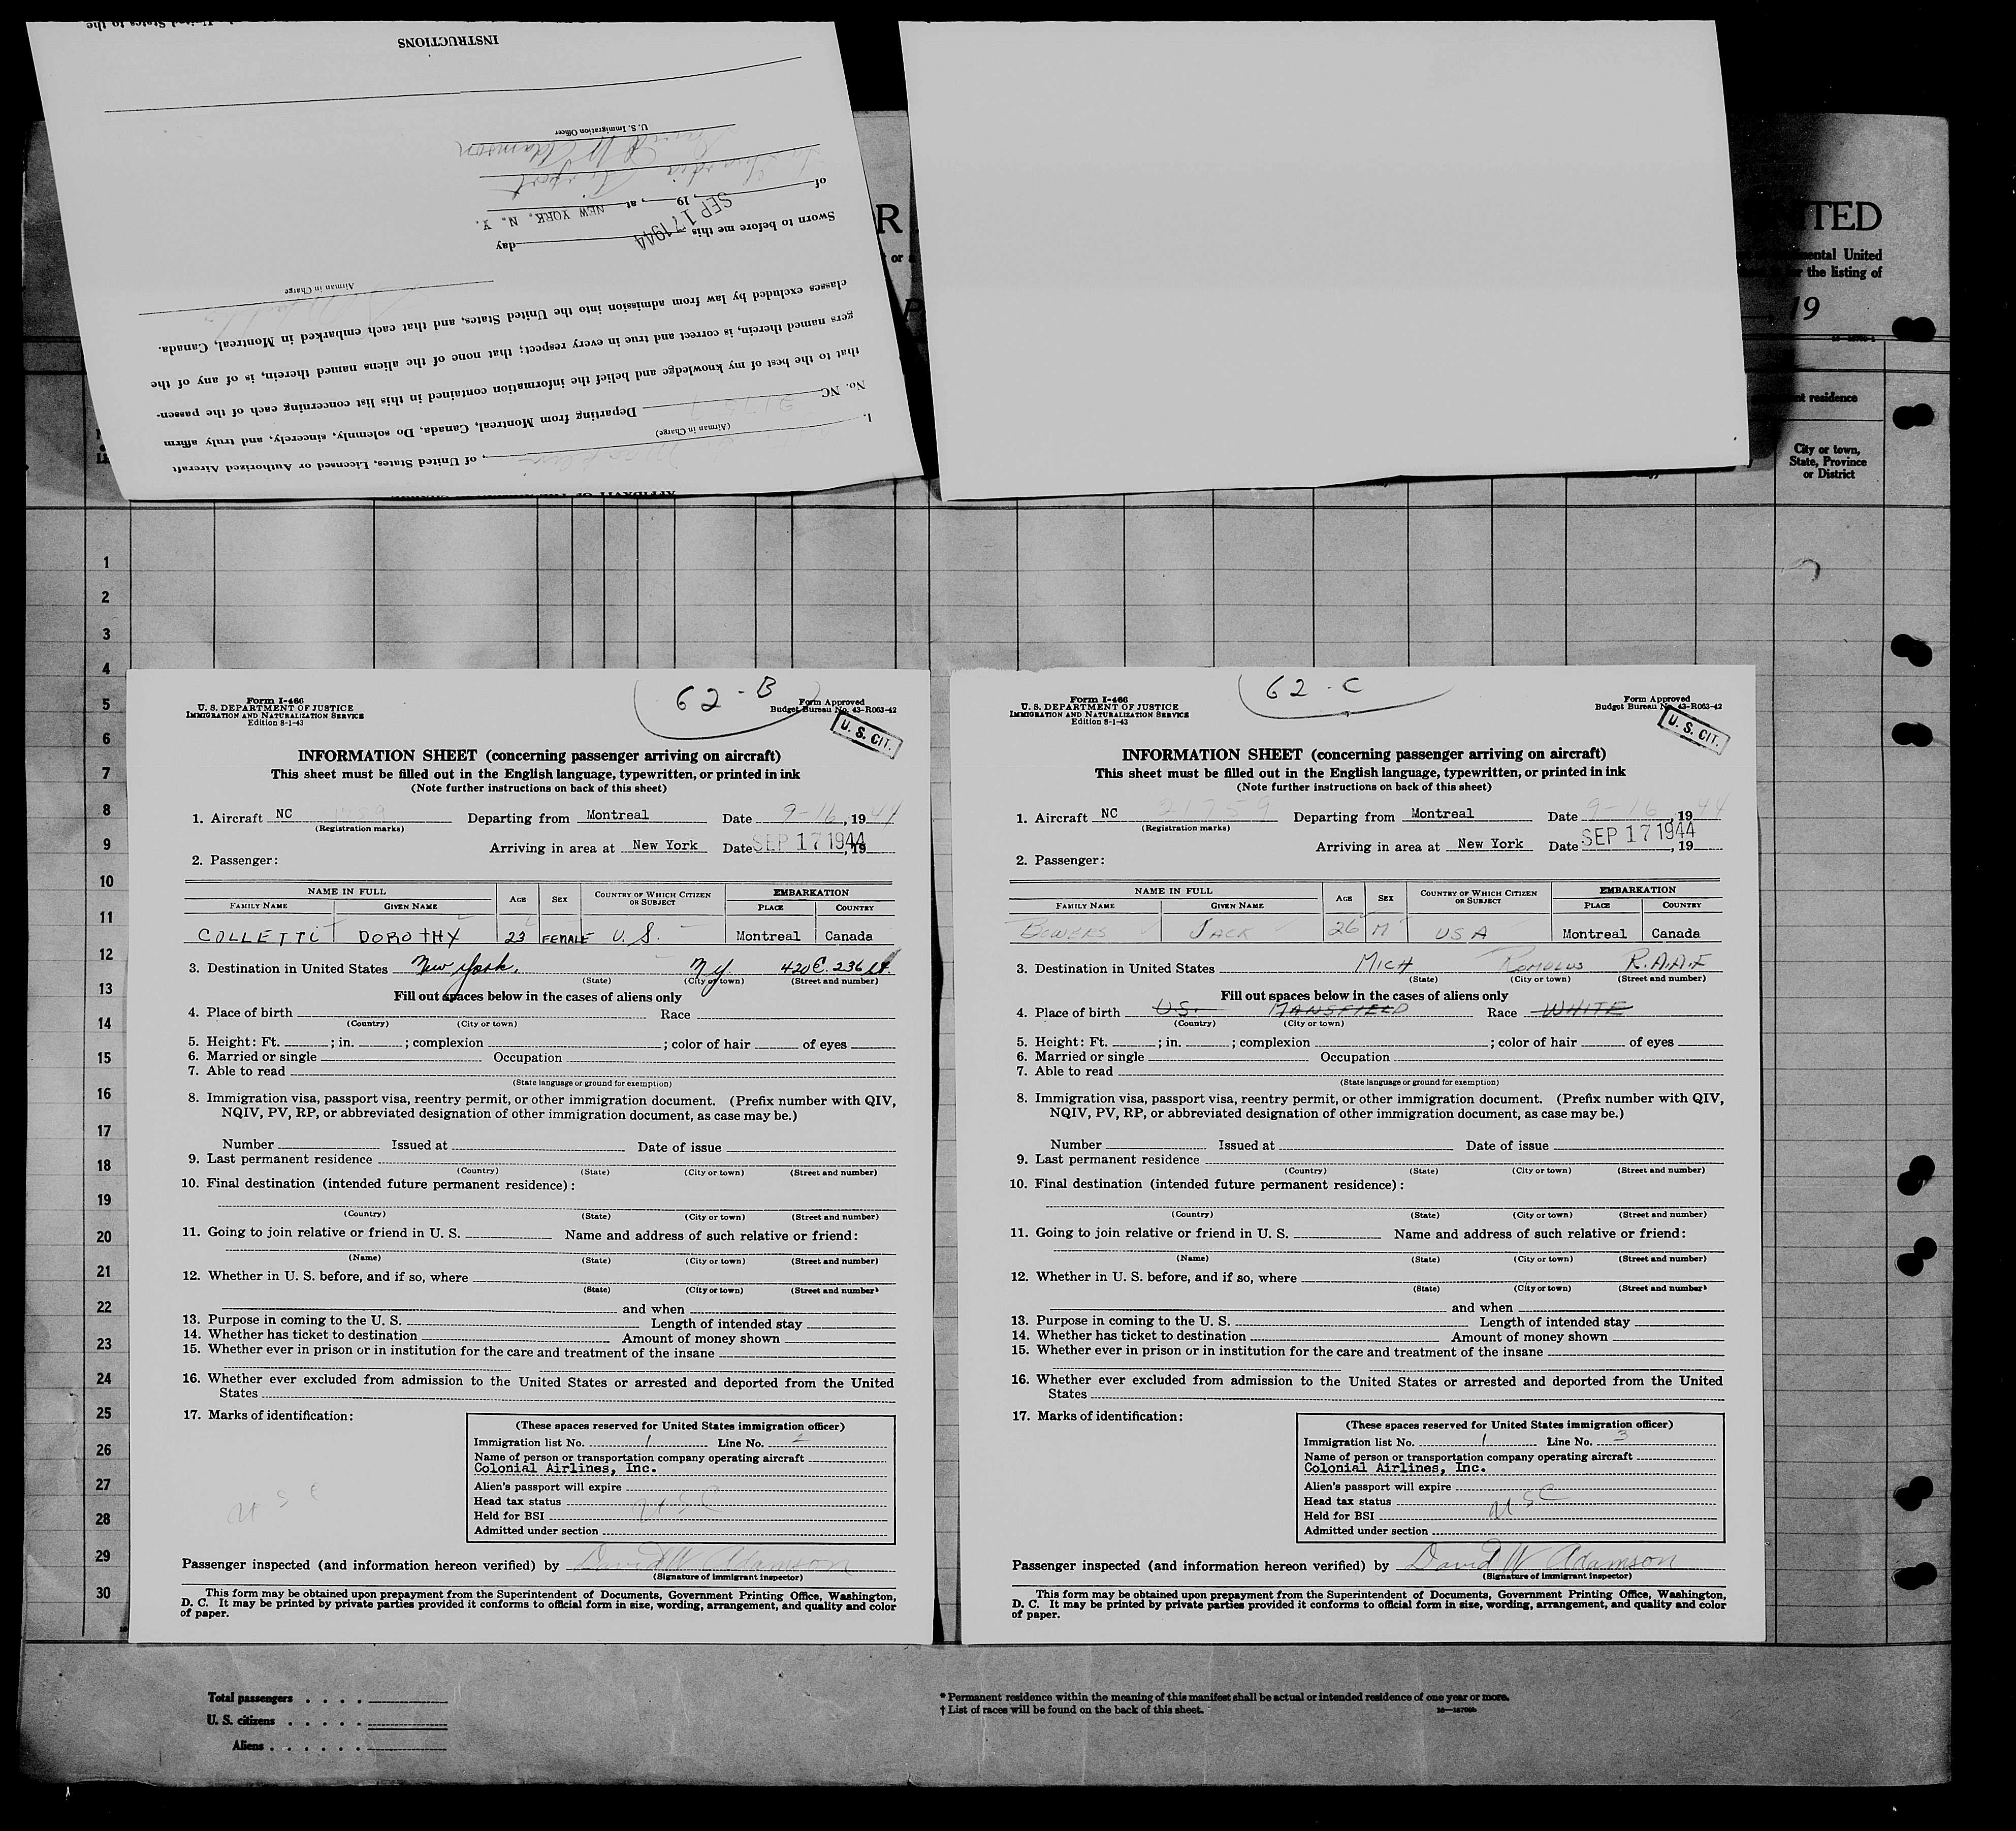 INSTRUCTIONS
U. S. Immigration Officer
David W Adamson
LaGuardia Airport
of , 19 , at NEW YORK, N. Y.
Sworn to before me this SEP 17 1944 day
Airman in Charge
classes excluded by law from admission into the United States, and that each embarked in Montreal, Canada.
gers named therein, is correct and true in every respect; that none of the aliens named therein, is of any of the
that to the best of my knowledge and belief the information contained in this list concerning each of the passen-
No. NC 21759 Departing from Montreal, Canada, Do solemnly, sincerely, and truly affirm
(Airman in Charge)
I, , of United States, Licensed or Authorized Aircraft
R
or a
P
ITED
mental United
r the listing of
, 19
nt residence
City or town,
State, Province
or District
1
2
3
4
5
6
7
8
9
10
11
12
13
14
15
16
17
18
19
20
21
22
23
24
25
26
27
28
29
30
62-B
Form I-466
U. S. DEPARTMENT OF JUSTICE
IMMIGRATION AND NATURALIZATION SERVICE
Edition 8-1-43
Form Approved
Budget Bureau No. 43-R063-42
U. S. CIT.
INFORMATION SHEET (concerning passenger arriving on aircraft)
This sheet must be filled out in the English language, typewritten, or printed in ink
(Note further instructions on back of this sheet)
1. Aircraft NC Departing from Montreal Date 9-16, 1944
(Registration marks)
Arriving in area at New York Date SEP 17 1944, 19
2. Passenger:
NAME IN FULL AGE SEX COUNTRY OF WHICH CITIZEN OR SUBJECT EMBARKATION
FAMILY NAME GIVEN NAME PLACE COUNTRY
COLLETTI DOROTHY 23 FEMALE U. S. Montreal Canada
3. Destination in United States New York, N Y. 420 E. 236 St.
(State) (City or town) (Street and number)
Fill out spaces below in the cases of aliens only
4. Place of birth Race
(Country) (City or town)
5. Height: Ft. ; in. ; complexion ; color of hair of eyes
6. Married or single Occupation
7. Able to read
(State language or ground for exemption)
8. Immigration visa, passport visa, reentry permit, or other immigration document. (Prefix number with QIV,
NQIV, PV, RP, or abbreviated designation of other immigration document, as case may be.)
Number Issued at Date of issue
9. Last permanent residence
(Country) (State) (City or town) (Street and number)
10. Final destination (intended future permanent residence):
(Country) (State) (City or town) (Street and number)
11. Going to join relative or friend in U. S. Name and address of such relative or friend:
(Name) (State) (City or town) (Street and number)
12. Whether in U. S. before, and if so, where
(State) (City or town) (Street and number)
and when
13. Purpose in coming to the U. S. Length of intended stay
14. Whether has ticket to destination Amount of money shown
15. Whether ever in prison or in institution for the care and treatment of the insane
16. Whether ever excluded from admission to the United States or arrested and deported from the United
States
17. Marks of identification:
(These spaces reserved for United States immigration officer)
Immigration list No. 1 Line No. 2
Name of person or transportation company operating aircraft
Colonial Airlines, Inc.
Alien's passport will expire
Head tax status U S C
Held for BSI
Admitted under section
U S C
Passenger inspected (and information hereon verified) by David W Adamson
(Signature of immigrant inspector)
This form may be obtained upon prepayment from the Superintendent of Documents, Government Printing Office, Washington,
D. C. It may be printed by private parties provided it conforms to official form in size, wording, arrangement, and quality and color
of paper.
62-C
Form I-466
U. S. DEPARTMENT OF JUSTICE
IMMIGRATION AND NATURALIZATION SERVICE
Edition 8-1-43
Form Approved
Budget Bureau No. 43-R063-42
U. S. CIT.
INFORMATION SHEET (concerning passenger arriving on aircraft)
This sheet must be filled out in the English language, typewritten, or printed in ink
(Note further instructions on back of this sheet)
1. Aircraft NC 21759 Departing from Montreal Date 9-16, 1944
(Registration marks)
Arriving in area at New York Date SEP 17 1944, 19
2. Passenger:
NAME IN FULL AGE SEX COUNTRY OF WHICH CITIZEN OR SUBJECT EMBARKATION
FAMILY NAME GIVEN NAME PLACE COUNTRY
BOWERS JACK 26 M USA Montreal Canada
3. Destination in United States MICH ROMULUS R.A.A.F
(State) (City or town) (Street and number)
Fill out spaces below in the cases of aliens only
4. Place of birth U.S. MANSFIELD Race WHITE
(Country) (City or town)
5. Height: Ft. ; in. ; complexion ; color of hair of eyes
6. Married or single Occupation
7. Able to read
(State language or ground for exemption)
8. Immigration visa, passport visa, reentry permit, or other immigration document. (Prefix number with QIV,
NQIV, PV, RP, or abbreviated designation of other immigration document, as case may be.)
Number Issued at Date of issue
9. Last permanent residence
(Country) (State) (City or town) (Street and number)
10. Final destination (intended future permanent residence):
(Country) (State) (City or town) (Street and number)
11. Going to join relative or friend in U. S. Name and address of such relative or friend:
(Name) (State) (City or town) (Street and number)
12. Whether in U. S. before, and if so, where
(State) (City or town) (Street and number)
and when
13. Purpose in coming to the U. S. Length of intended stay
14. Whether has ticket to destination Amount of money shown
15. Whether ever in prison or in institution for the care and treatment of the insane
16. Whether ever excluded from admission to the United States or arrested and deported from the United
States
17. Marks of identification:
(These spaces reserved for United States immigration officer)
Immigration list No. 1 Line No. 3
Name of person or transportation company operating aircraft
Colonial Airlines, Inc.
Alien's passport will expire
Head tax status U S C
Held for BSI
Admitted under section
Passenger inspected (and information hereon verified) by David W Adamson
(Signature of immigrant inspector)
This form may be obtained upon prepayment from the Superintendent of Documents, Government Printing Office, Washington,
D. C. It may be printed by private parties provided it conforms to official form in size, wording, arrangement, and quality and color
of paper.
Total passengers
U. S. citizens
Aliens
* Permanent residence within the meaning of this manifest shall be actual or intended residence of one year or more.
† List of races will be found on the back of this sheet.